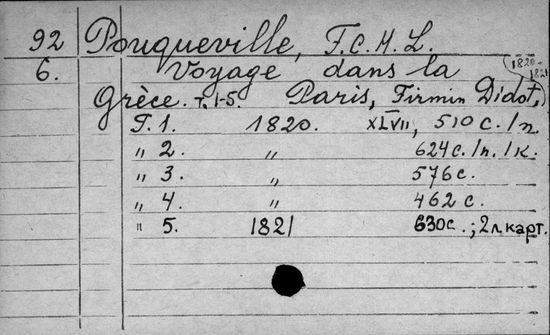 92 Pouqueville, F.C.H.L.
6. Voyage dans la (1820-
Grèce. т. 1-5. Paris, Firmin Didot, 1821)
T. 1. 1820. XLVII, 510 с./п.
„ 2. „ 624 с./п./к.
„ 3. „ 576 с.
„ 4. „ 462 с.
„ 5. 1821 630 с.; 2 л. карт.